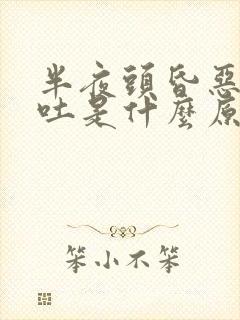 半夜頭昏惡
吐是什麼原
笨小不笨